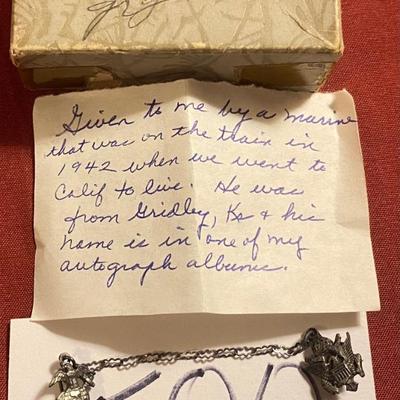 Given to me by a marine
that was on the train in
1942 when we went to
Calif to live. He was
from Gridley, Ks & his
name is in one of my
autograph albums.